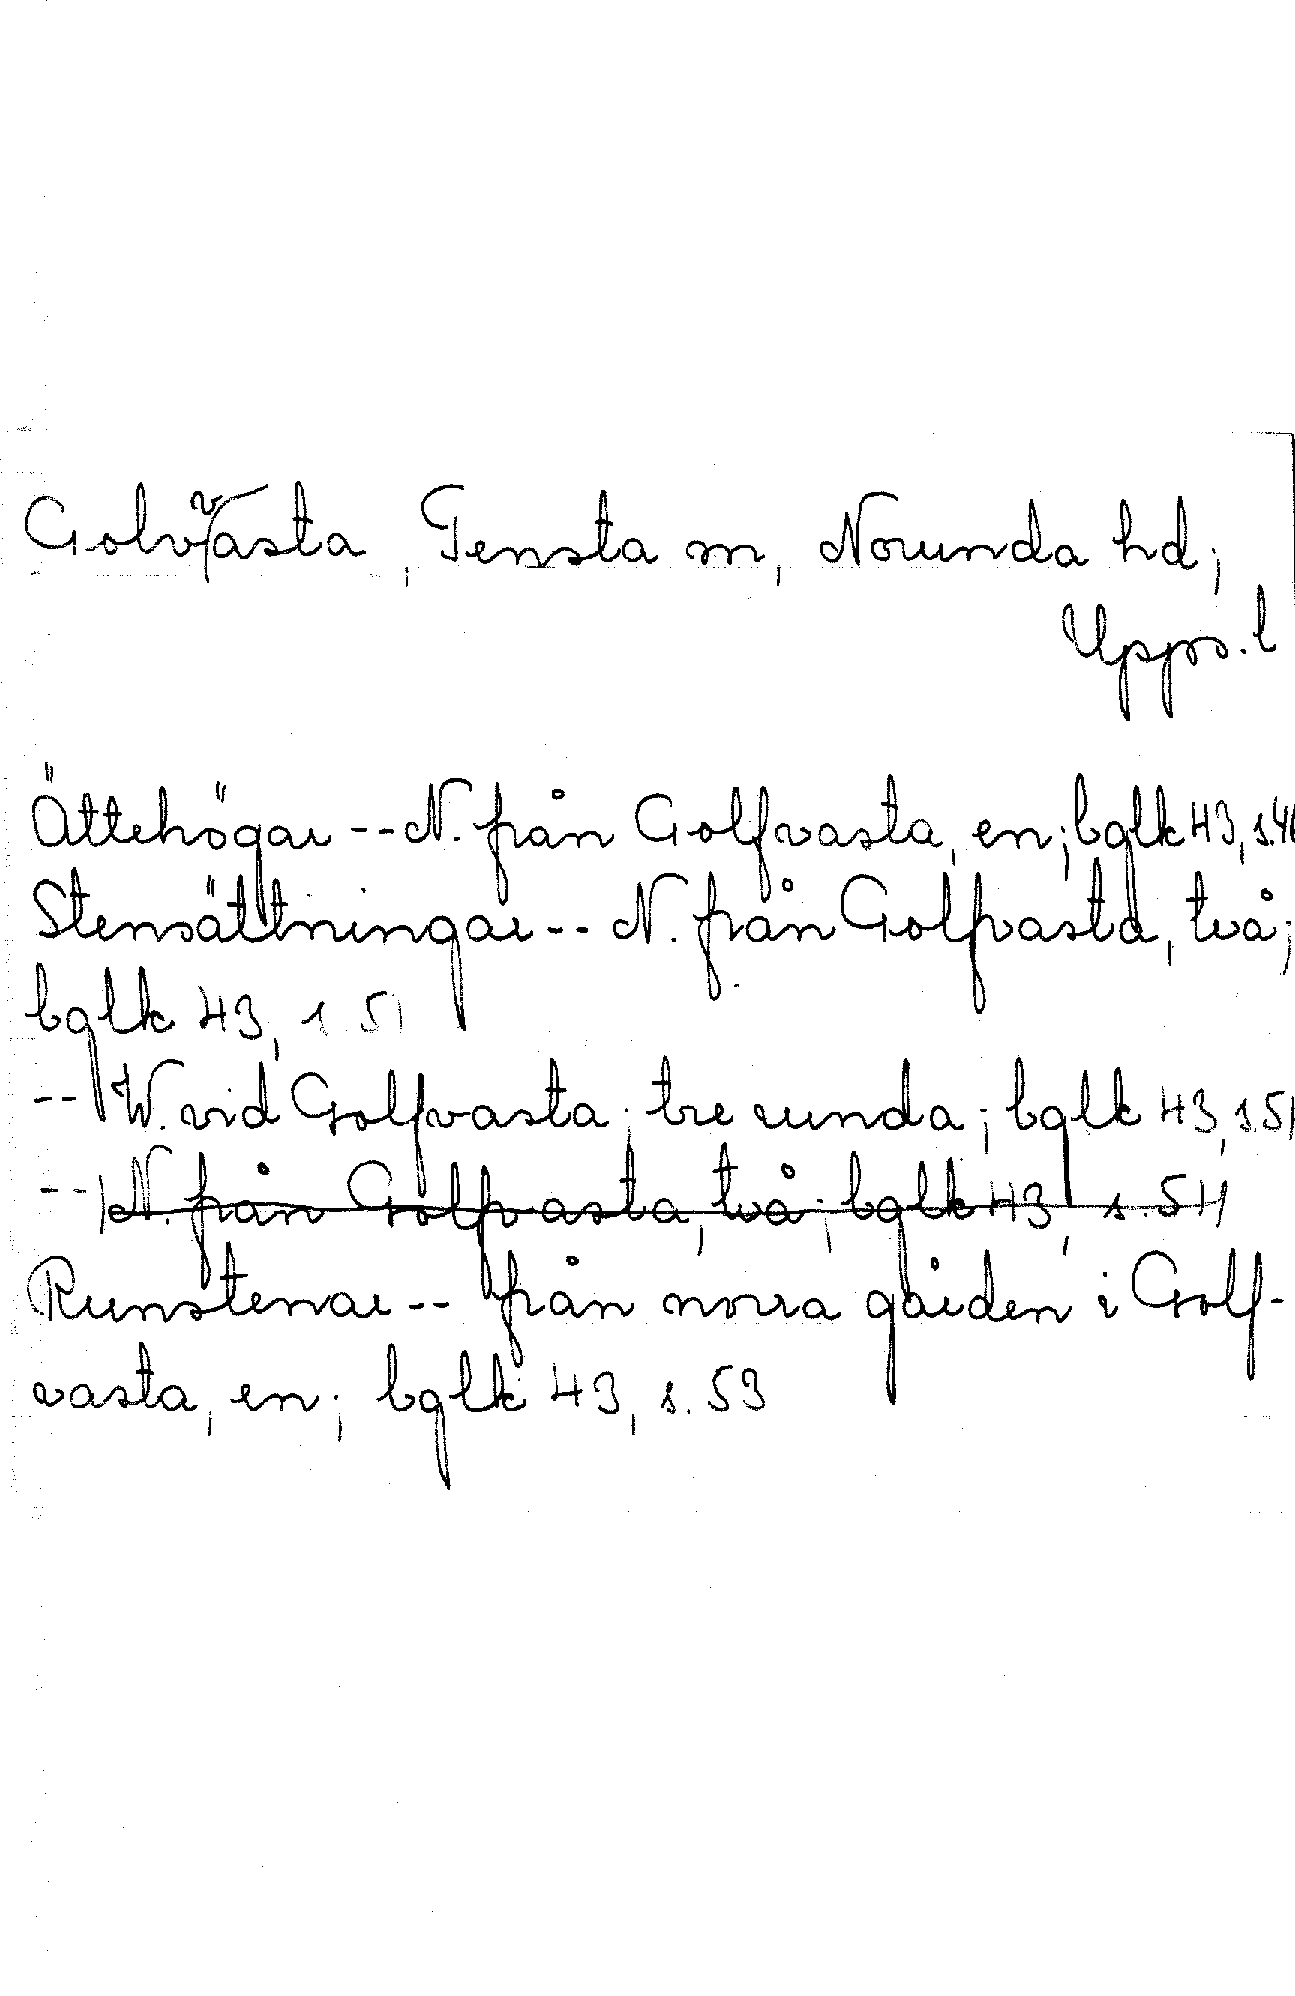 Golvvasta, Tensta sn, Norunda hd;
Upps. l
Ättehögar -- N. från Golfvasta, en; bglk 43, s.
Stensättningar -- N. från Golfvasta, två;
bglk 43, s 51
-- W. vid Golfvasta, tre runda; bglk 43, s. 51
-- N. från Golfvasta, två; bglk 43, s. 54
Runstenar -- från norra gården i Golf-
vasta, en; bglk 43, s. 53